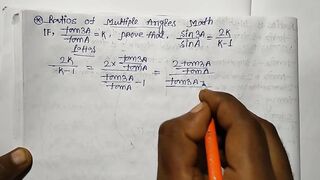 Ratios of Multiple Angles Math
If, tan3A/tanA = K, prove that, sin3A/sinA = 2K/K-1
2K/K-1 = 2× tan3A/tanA / tan3A/tanA - 1 = 2tan3A/tanA / tan3A